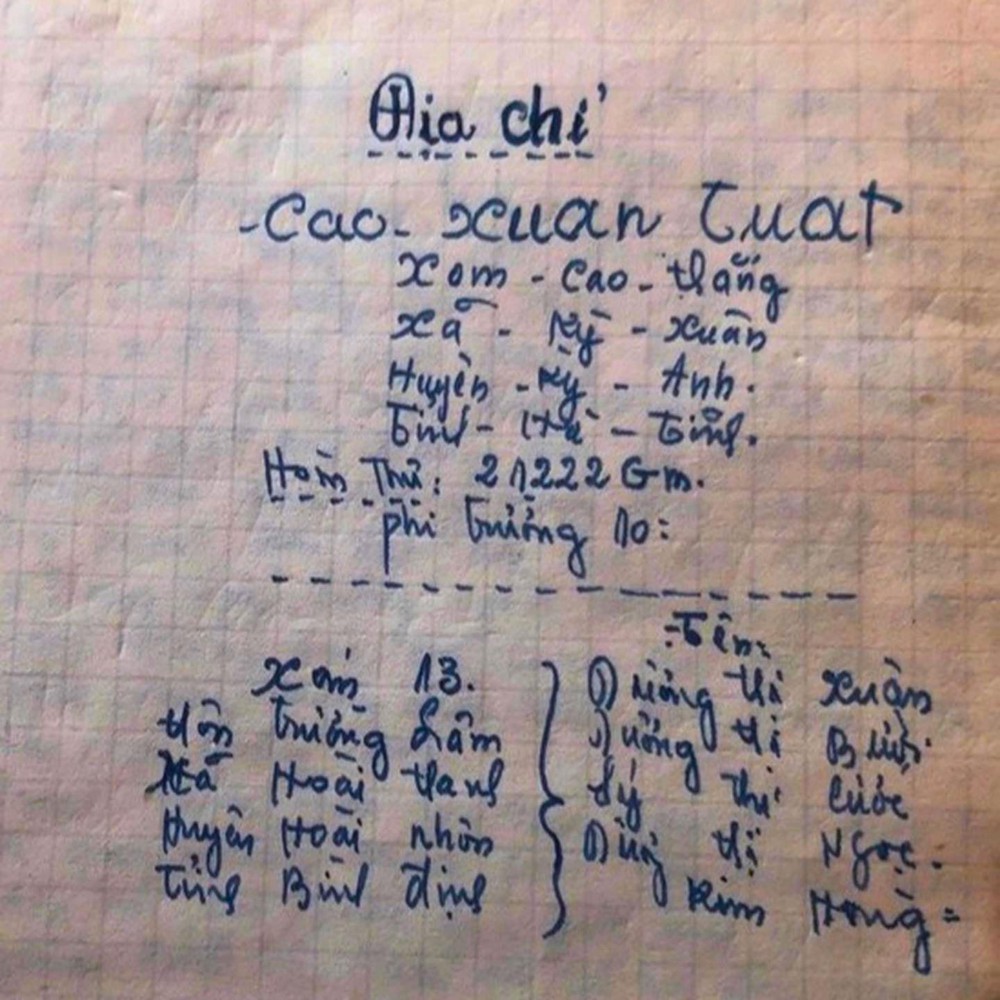 Địa chỉ
- Cao - Xuan Tuat
Xom - Cao - thắng
Xã - Kỳ - Xuân
Huyện - Kỳ - Anh.
Tỉnh - Hà - Tĩnh.
Hòm Thư: 21222 Gm.
phi trường 10:
Tên:
Xóm 13.
thôn trường Lâm
Xã Hoài thanh
Huyện Hoài nhơn
Tỉnh Bình định
Dương thị Xuân
Dương thị Bưởi
thị
thị Ngọc.
Kim Hồng =